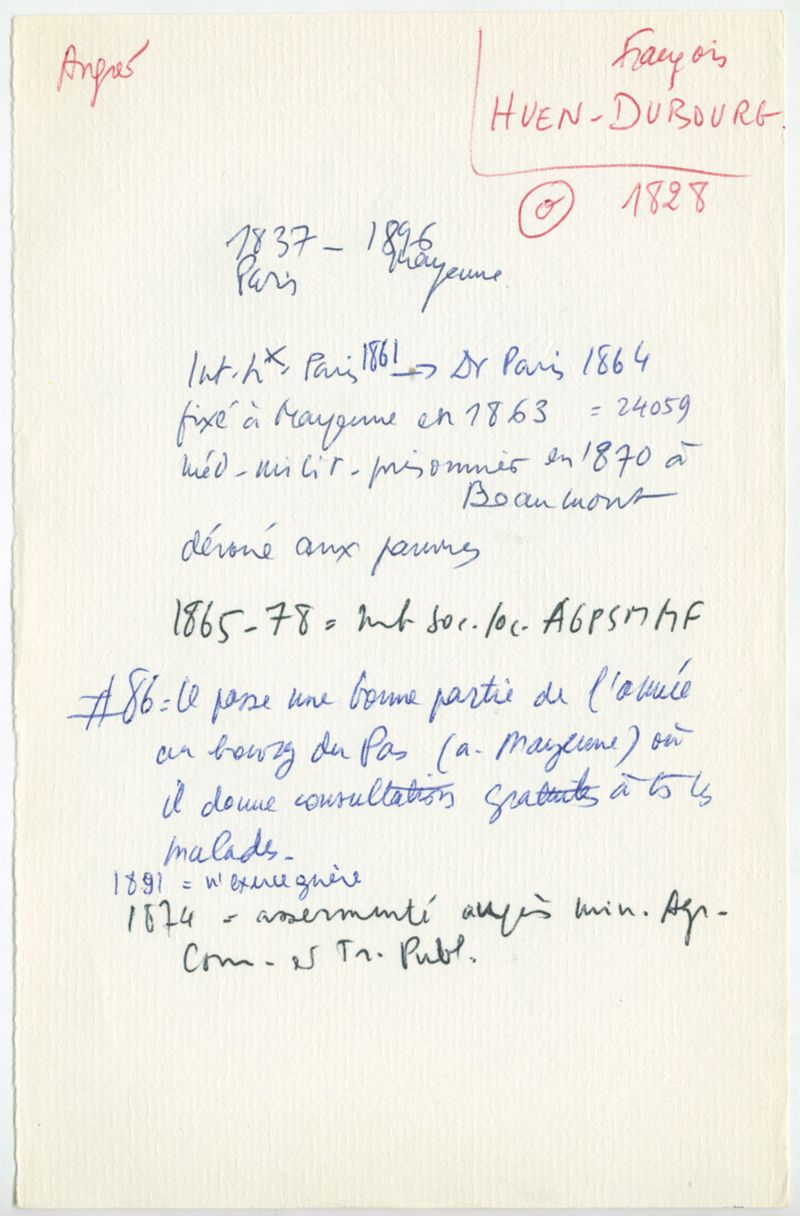 François
HUEN-DUBOURG.
1828
1837 - 1896
Paris Mayenne
Int. hx. Paris 1861 → Dr Paris 1864
fixé à Mayenne en 1863 = 24059
Méd-milit-prisonnier en 1870 à
Beaumont
dévoué aux pauvres
1865-78 = mb soc. loc. AGPSMMF
# 86 = Il passe une bonne partie de l'année
au bourg du Pas (a. Mayenne) où
il donne consultations gratuites à ts ls
malades.
1891 = n'exerce guère
1874 = assermenté auprès min. Agr.
Com. et Tr. Publ.